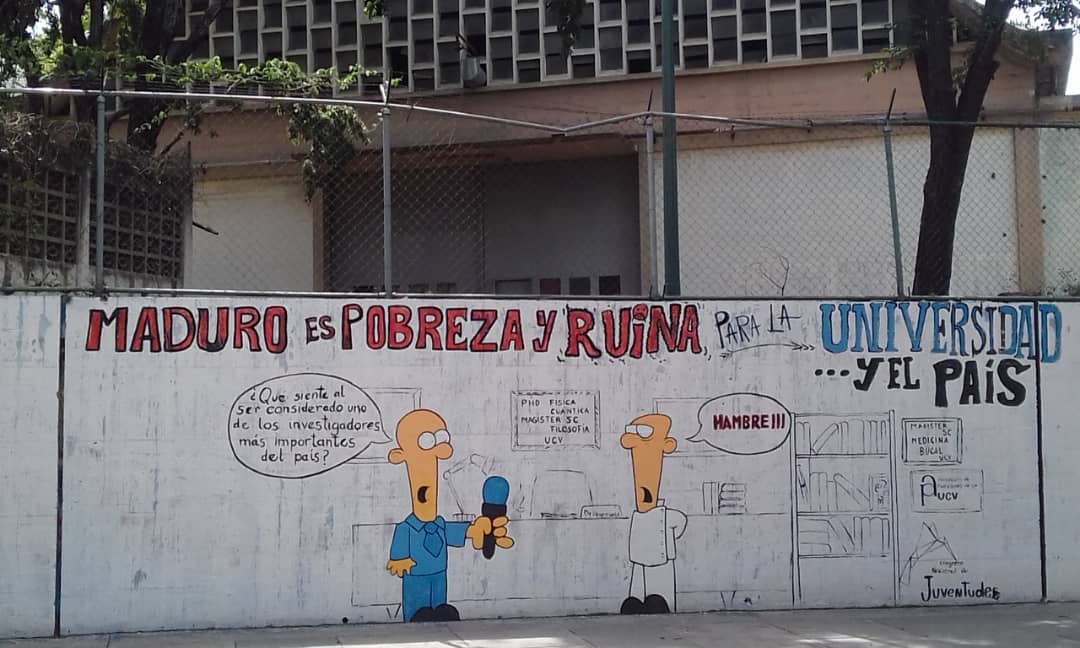 MADURO ES POBREZA Y RUINA, PARA LA UNIVERSIDAD
...Y EL PAÍS
¿Qué siente al
ser considerado uno
de los investigadores
más importantes
del país?
PHD FISICA
CUÁNTICA
MAGISTER SC
FILOSOFIA
UCV
HAMBRE!!!
MAGISTER
SC
MEDICINA
BUCAL
UCV
UCV
Juventudes